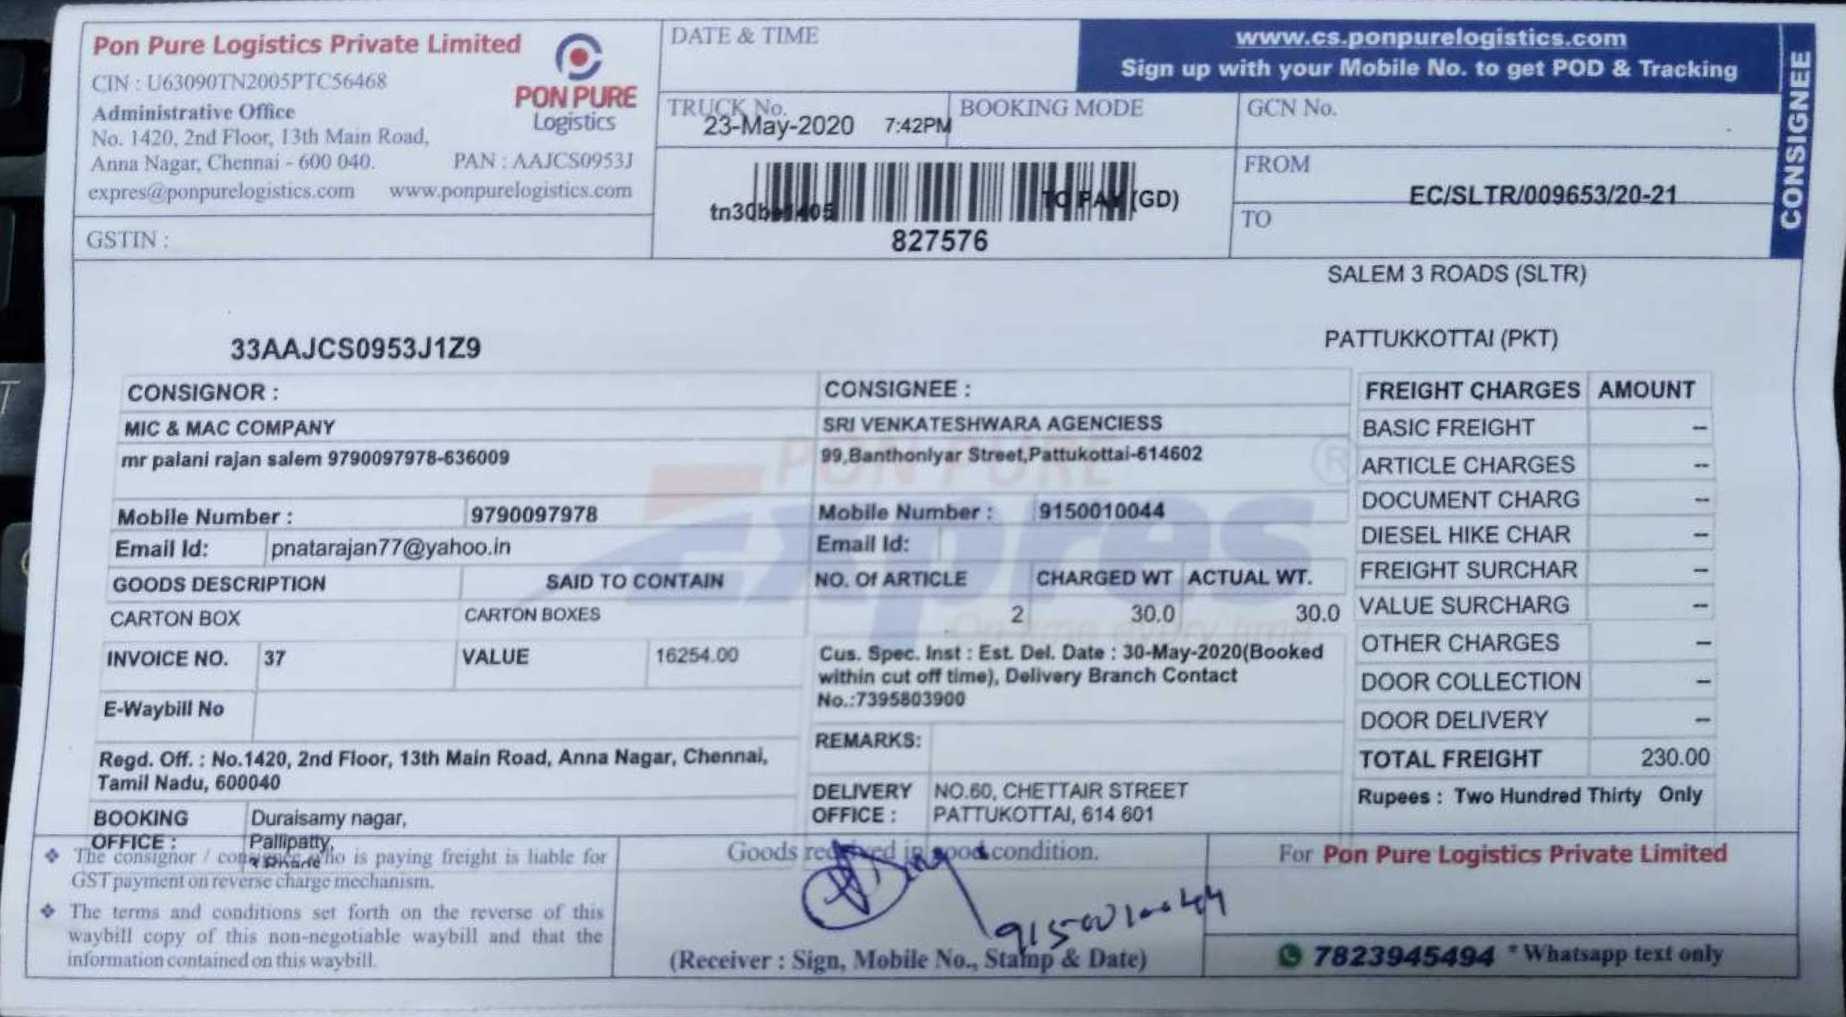 Pon Pure Logistics Private Limited
CIN : U63090TN2005PTC56468
Administrative Office
No. 1420, 2nd Floor, 13th Main Road,
Anna Nagar, Chennai - 600 040. PAN : AAJCS0953J
expres@ponpurelogistics.com www.ponpurelogistics.com
PON PURE
Logistics
GSTIN :
DATE & TIME
www.cs.ponpurelogistics.com
Sign up with your Mobile No. to get POD & Tracking
CONSIGNEE
TRUCK No. BOOKING MODE GCN No.
23-May-2020 7:42PM
FROM
EC/SLTR/009653/20-21
tn30be1405 TO PAY (GD)
TO
827576
SALEM 3 ROADS (SLTR)
33AAJCS0953J1Z9
PATTUKKOTTAI (PKT)
CONSIGNOR : CONSIGNEE : FREIGHT CHARGES AMOUNT
MIC & MAC COMPANY SRI VENKATESHWARA AGENCIESS BASIC FREIGHT --
mr palani rajan salem 9790097978-636009 99,Banthoniyar Street,Pattukottai-614602 ARTICLE CHARGES --
PON PURE
Expres
On-time every time
®
DOCUMENT CHARG --
Mobile Number : 9790097978 Mobile Number : 9150010044
DIESEL HIKE CHAR --
Email Id: pnatarajan77@yahoo.in Email Id:
GOODS DESCRIPTION SAID TO CONTAIN NO. Of ARTICLE CHARGED WT ACTUAL WT. FREIGHT SURCHAR --
CARTON BOX CARTON BOXES 2 30.0 30.0 VALUE SURCHARG --
INVOICE NO. 37 VALUE 16254.00 OTHER CHARGES --
Cus. Spec. Inst : Est. Del. Date : 30-May-2020(Booked
within cut off time), Delivery Branch Contact
No.:7395803900
DOOR COLLECTION --
E-Waybill No
DOOR DELIVERY --
REMARKS:
TOTAL FREIGHT 230.00
Regd. Off. : No.1420, 2nd Floor, 13th Main Road, Anna Nagar, Chennai,
Tamil Nadu, 600040
DELIVERY NO.60, CHETTAIR STREET
OFFICE : PATTUKOTTAI, 614 601
Rupees : Two Hundred Thirty Only
BOOKING Duraisamy nagar,
OFFICE : Pallipatty,
❖ The consignor / consignee who is paying freight is liable for
GST payment on reverse charge mechanism.
❖ The terms and conditions set forth on the reverse of this
waybill copy of this non-negotiable waybill and that the
information contained on this waybill.
Goods received in good condition.
9150010044
(Receiver : Sign, Mobile No., Stamp & Date)
For Pon Pure Logistics Private Limited
7823945494 * Whatsapp text only